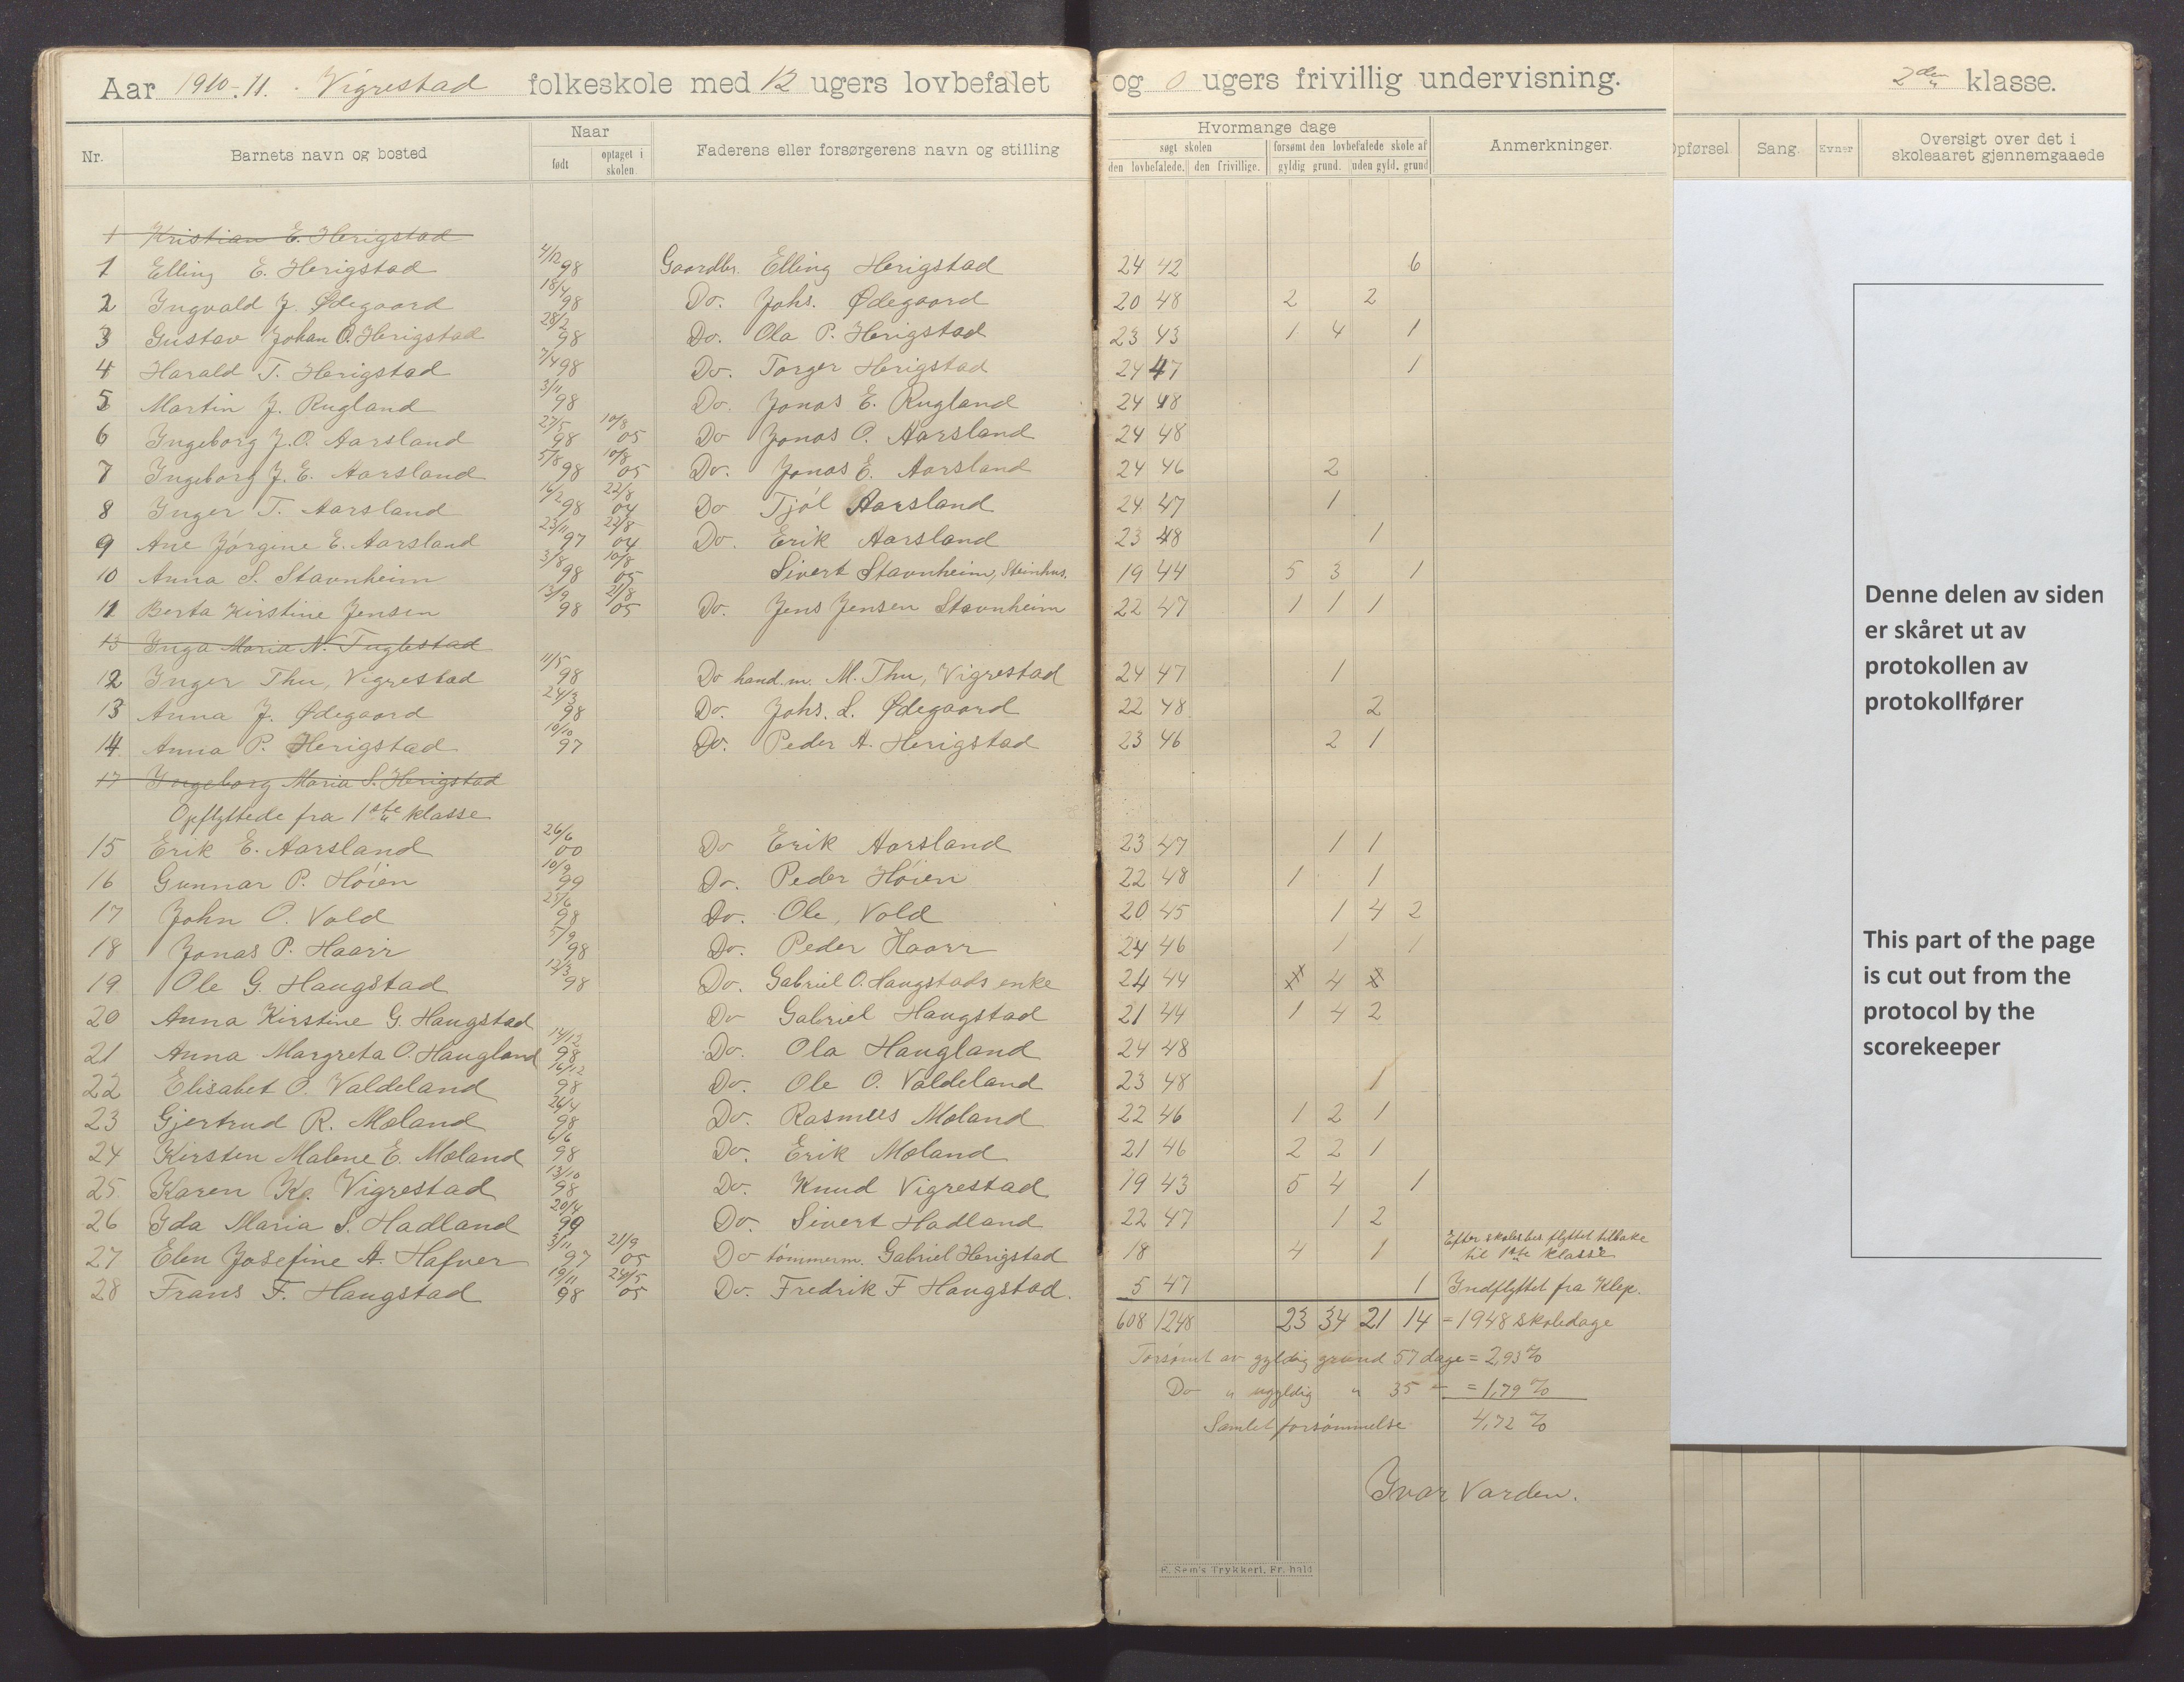 Aar 1910-11. Vigrestad folkeskole med 12 ugers lovbefalet og 0 ugers frivillig undervisning. 2den klasse.
Nr. Barnets navn og bosted Naar født optaget i skolen. Faderens eller forsørgerens navn og stilling Hvormange dage søgt skolen den lovbefalede. den frivillige. forsømt den lovbefalede skole af gyldig grund. uden gyld. grund Anmerkninger. Opførsel Sang. Evner Oversigt over det i skoleaaret gjennemgaaede
1 Kristian E. Herigstad
1 Elling E. Herigstad 4/12 98 Gaardbr. Elling Herigstad 24 42 6
2 Ingvald J. Ødegaard 18/4 98 Do. Johs. Ødegaard 20 48 2 2
3 Gustav Johan O. Herigstad 28/2 98 Do. Ola P. Herigstad 23 43 1 4 1
4 Harald T. Herigstad 7/4 98 Do. Torger Herigstad 24 47 1
5 Martin J. Rugland 3/11 98 Do. Jonas E. Rugland 24 48
6 Ingeborg J.O. Aarsland 27/5 98 10/8 05 Do Jonas O. Aarsland 24 48
7 Ingeborg J.E. Aarsland 5/8 98 10/8 05 Do. Jonas E. Aarsland 24 46 2
8 Inger T. Aarsland 16/2 98 22/8 04 Do Tjøl Aarsland 24 47 1
9 Ane Jørgine E. Aarsland 23/11 97 22/8 04 Do. Erik Aarsland 23 48 1
10 Anna S. Stavnheim 3/8 98 10/8 05 Sivert Stavnheim, Steinhus. 19 44 5 3 1
11 Berta Kirstine Jensen 13/9 98 21/8 05 Do. Jens Jensen Stavnheim 22 47 1 1 1
13 Inga Maria N. Fuglestad
12 Inger Thu, Vigrestad 11/5 98 Do hand.m. M. Thu, Vigrestad 24 47 1
13 Anna J. Ødegaard 24/3 98 Do. Johs. L. Ødegaard 22 48 2
14 Anna P. Herigstad 10/10 97 Do. Peder A. Herigstad 23 46 2 1
17 Ingeborg Maria S. Herigstad
Opflyttede fra 1ste klasse
15 Erik E. Aarsland 26/6 00 Do Erik Aarsland 23 47 1 1
16 Gunnar P. Høien 10/9 99 Do. Peder Høien 22 48 1 1
17 John O. Vold 25/6 98 Do. Ole, Vold 20 45 1 4 2
18 Jonas P. Haarr 5/9 98 Do. Peder Haarr 24 46 1 1
19 Ole G. Haugstad 12/3 98 Do. Gabriel O. Haugstads enke 24 44 4
20 Anna Kirstine G. Haugstad Do Gabriel Haugstad 21 44 1 4 2
21 Anna Margreta O. Haugland 14/12 98 Do. Ola Haugland 24 48
22 Elisabet O. Valdeland 16/12 98 Do. Ole O. Valdeland 23 48 1
23 Gjertrud R. Moland 26/4 98 Do. Rasmus Moland 22 46 1 2 1
24 Kirsten Malene E. Moland 6/6 98 Do. Erik Moland 21 46 2 2 1
25 Karen Kn. Vigrestad 13/10 98 Do. Knud Vigrestad 19 43 5 4 1
26 Ida Maria S. Hadland 20/4 99 Do. Sivert Hadland 22 47 1 2
27 Elen Josefine A. Hafner 3/11 97 21/9 05 Do tømmerm. Gabriel Herigstad 18 4 1 Efter skoles bes flyttet tilbake til 1ste klasse
28 Frans F. Haugstad 19/11 98 24/5 05 Do. Fredrik F Haugstad. 5 47 1 Indflyttet fra Klep.
608 1248 23 34 21 14 = 1948 skoledage
Forsømt av gyldig grund 57 dage = 2,93 %
Do " ugyldig " 35 - = 1,79 %
Samlet forsømmelse 4,72 %
Ivar Varden.
E. Sem's Trykkeri, Fr.hald
Denne delen av siden
er skåret ut av
protokollen av
protokollfører
This part of the page
is cut out from the
protocol by the
scorekeeper